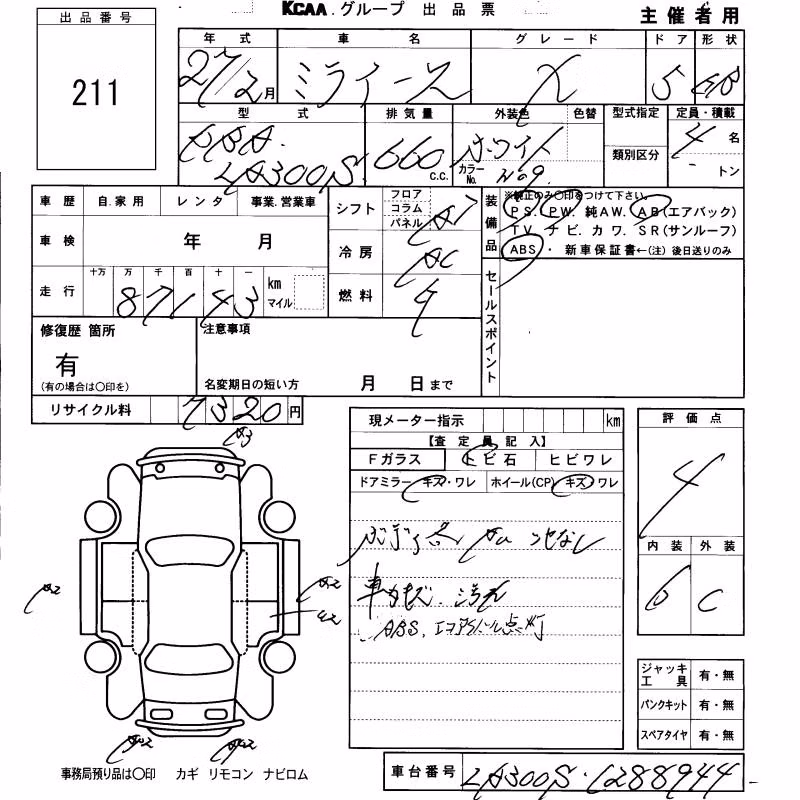 KCAA.グループ 出品票
主催者用
出品番号
211
年式 車名 グレード ドア 形状
27/2月 ミライース X 5 HB
型式 排気量 外装色 色替 型式指定 定員・積載
DBA.
LA300S 660 C.C. ホワイト
カラーNo. W09
類別区分
4 名
トン
車歴 自.家用 レンタ 事業.営業車
シフト フロア コラム パネル AT
装備品
※純正のみ〇印をつけて下さい。
PS. PW. 純AW. AB(エアバック)
TV. ナビ. カワ. SR(サンルーフ)
ABS ・ 新車保証書←(注) 後日送りのみ
車検 年 月
冷房 AC
走行 十万 万 千 百 十 一
87143 km マイル
燃料
セールスポイント
修復歴 箇所
有
(有の場合は〇印を)
注意事項
名変期日の短い方 月 日まで
リサイクル料 7320円
現メーター指示 km
【査定員記入】
Fガラス トビ石 ヒビワレ
ドアミラー キズ・ワレ ホイール(CP) キズ・ワレ
ABS、エアバッグ点灯
評価点
4
内装 外装
C
A3
A2
A2
A2
A2
ジャッキ工具 有・無
パンクキット 有・無
スペアタイヤ 有・無
事務局預り品は〇印 カギ リモコン ナビロム
車台番号 LA300S-1288944